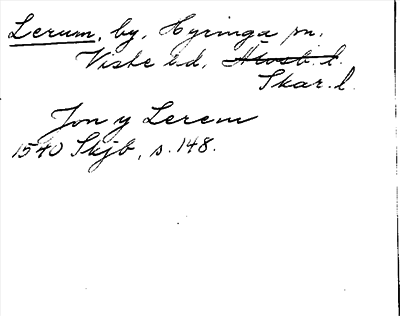 Lerum, by, Hyringa sn.
Viste hd. Älvsb. l.
Skar. l.
Jon y Lerem
1540 Skjb, s. 148.